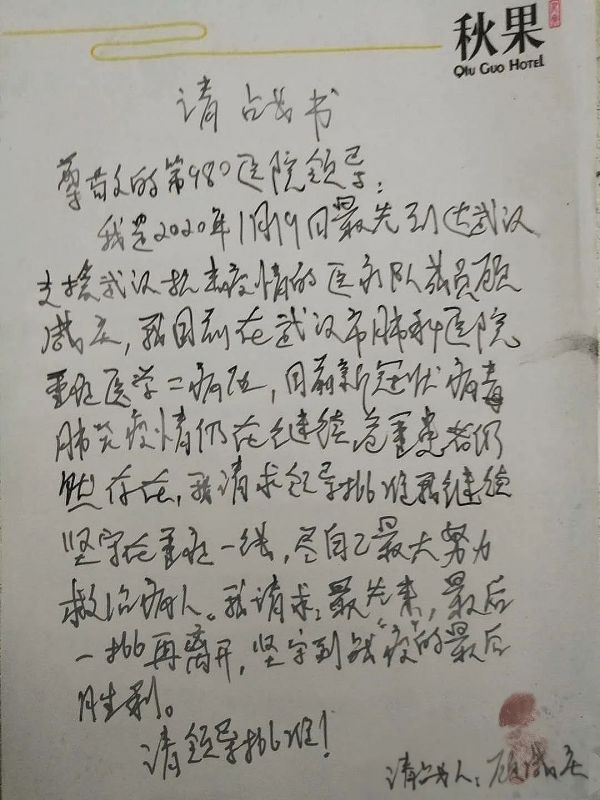 秋果
QIU GUO HOTEL
请战书
尊敬的第980医院领导:
我是2020年1月19日最先到达武汉
支援武汉抗击疫情的医疗队成员顾
，我目前在武汉市肺科医院
重症医学二病区，目前新冠状病毒
肺炎疫情仍在继续，危重患者仍
然存在，我请求领导批准我继续
坚守在重症一线，尽自己最大努力
救治病人。我请求：最先来，最后
一批再离开，坚守到战“疫”的最后
胜利。
请领导批准！
请战人：顾